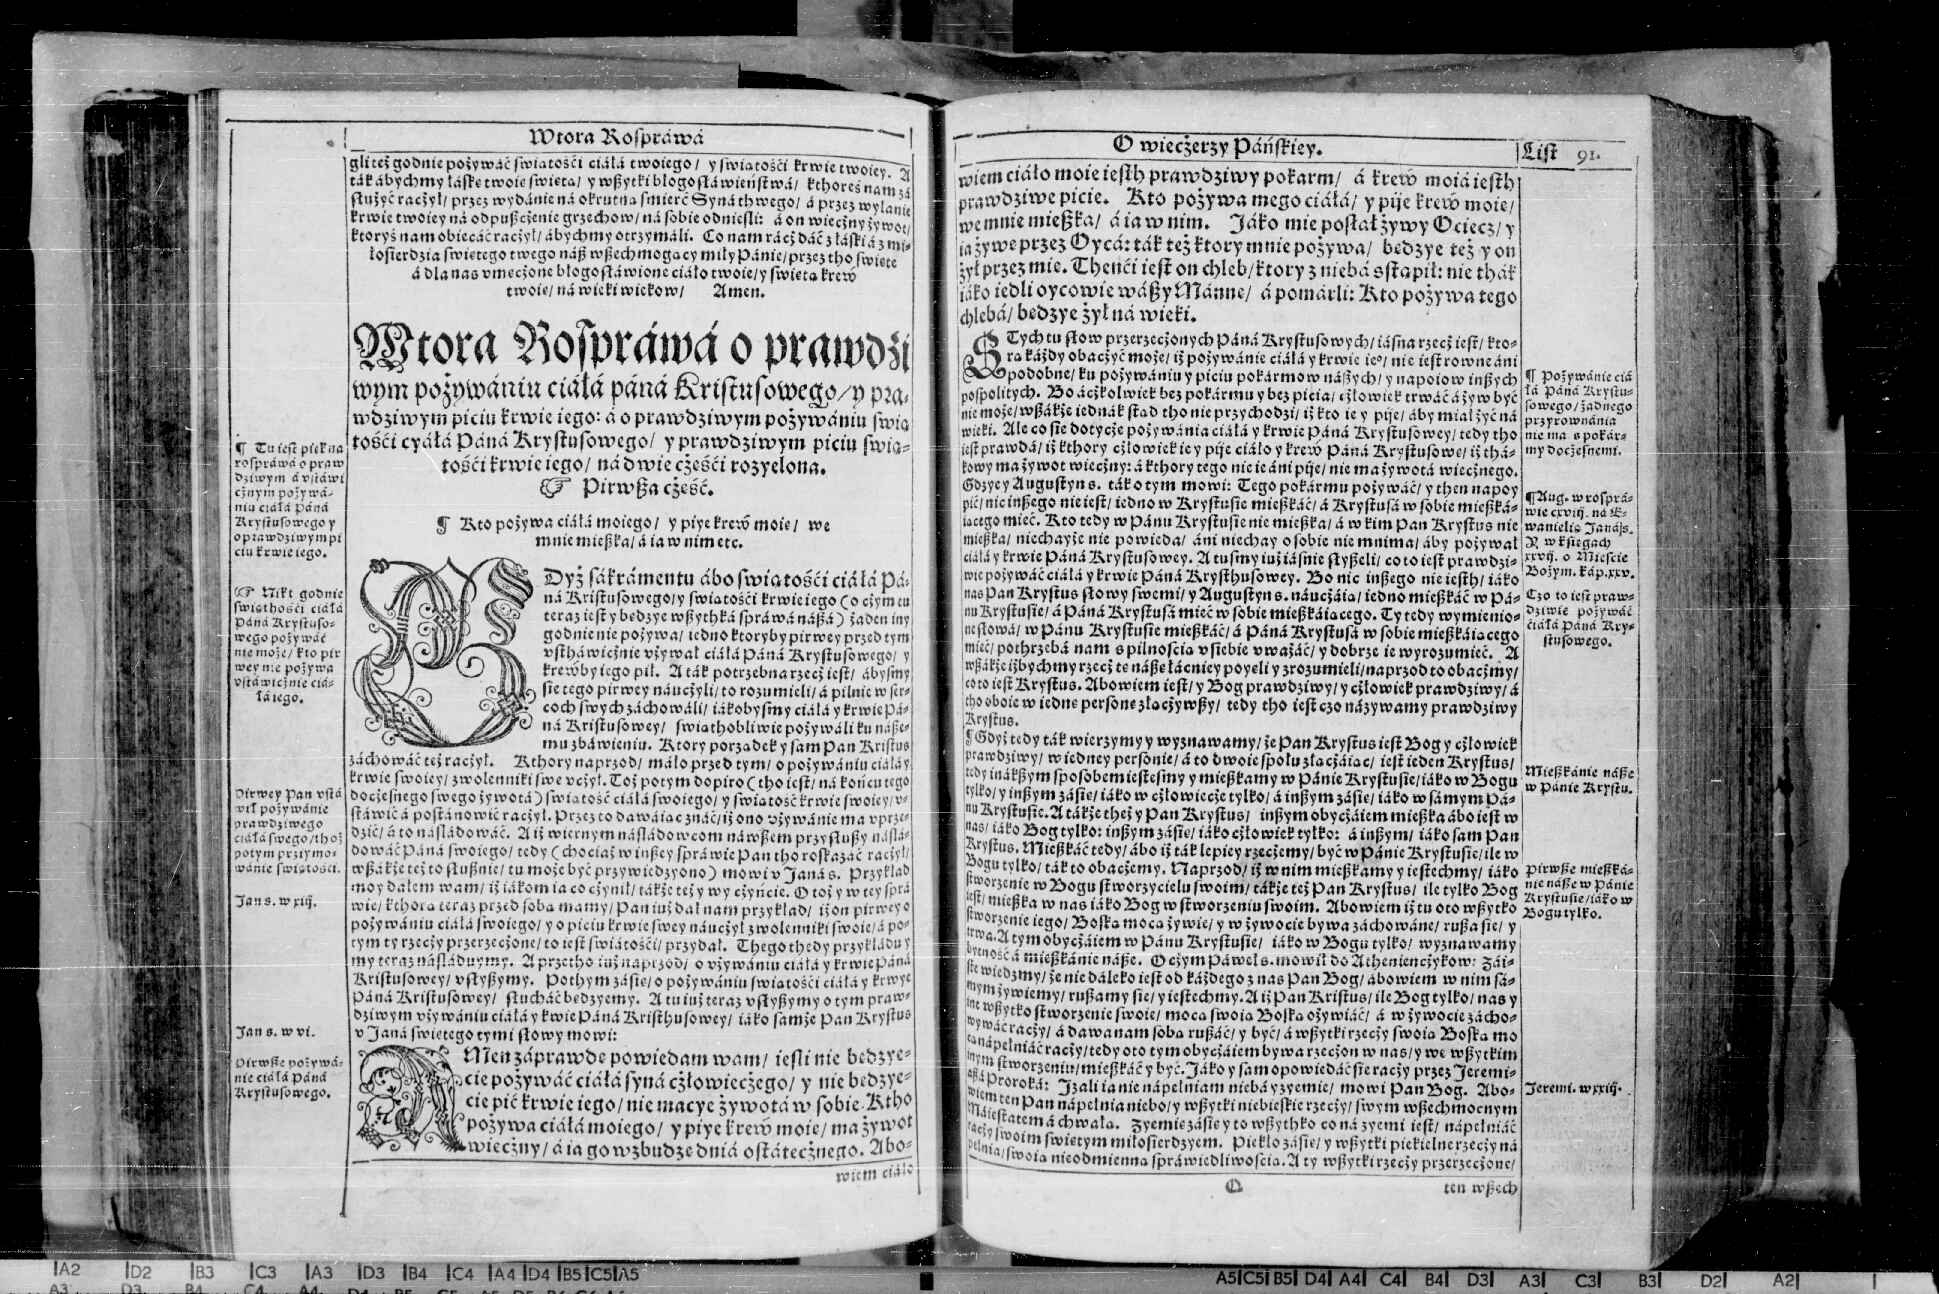 Wtora Rospráwá
gli też godnie pożywáć swiatosći ciáłá twoiego/ y swiatosći krwie twoiey. A
ták ábychmy łáske twoie swieta/ y wßytki błogosłáwieństwá/ kthoreś nam zá
służyć raczył/ przez wydánie ná okrutna smierć Syná thwego/ á przez wylánie
krwie twoiey ná odpußczenie grzechow/ ná sobie odniesli: á on wieczny żywot/
ktoryś nam obiecáć raczył/ ábychmy otrzymáli. Co nam rácż dáć z łáski á z mi-
łosierdzia swietego twego náß wßechmogacy miły Pánie/ przez tho swiete
á dla nas vmeczone błogosłáwione ciáło twoie/ y swieta krew
twoie/ ná wieki wiekow/ Amen.
Wtora Rospráwá o prawdźi
wym pożywániu ciáłá páná Kristusowego/ y pra-
wdziwym piciu krwie iego: á o prawdziwym pożywániu swia
tosći cyáłá Páná Krystusowego/ y prawdziwym piciu swia-
tosći krwie iego/ ná dwie cżeśći rozyelona.
☞ Pirwßa cżeść.
¶ Kto pożywa ciáłá moiego/ y piye krew moie/ we
mnie mießka/ á ia w nim etc.
GDyż sákrámentu ábo swiatosći ciáłá Pá-
ná Kristusowego/ y swiatosći krwie iego (o cżym tu
teraz iest y bedzye wßytká spráwá náßá) żaden iny
godnie nie pożywa/ iedno ktoryby pirwey przed tym
vstháwicżnie vżywał ciáłá Páná Krystusowego/ y
krewby iego pił. A ták potrzebna rzecż iest/ ábysmy
sie tego pirwey náucżyli/ to rozumieli/ á pilnie w ser-
coch swych záchowáli/ iákobysmy ciáłá y krwie Pá-
ná Kristusowey/ swiathobliwie pożywáli ku náße-
mu zbáwieniu. Ktory porzadek y sam Pan Kristus
záchowáć też raczył. Kthory naprzod/ máło przed tym/ o pożywániu ciáłá y
krwie swoiey/ zwolenniki swe vcżył. Toż potym dopiro (tho iest/ ná końcu tego
docżesnego swego żywotá) swiatość ciáłá swoiego/ y swiatość krwie swoiey/ v-
stáwić á postánowić racżył. Przez to dawáiac znáć/ iż ono vżywánie ma vprze-
dzić/ á to násládowáć. A iż wiernym násládowcom ná wßem przyslußy násla-
dowáć Páná swoiego/ tedy (chociaż w inßey spráwie Pan tho roskazáć racżył/
wßákże też to słußnie/ tu może być przywiedzyono) mowi v Janá s. Przykład
moy dałem wam/ iż iákom ia co cżynił/ tákże też y wy cżyńcie. O toż y w tey sprá
wie/ kthora teraz przed soba mamy/ Pan iuż dał nam przykład/ iż on pirwey o
pożywániu ciáłá swoiego/ y o piciu krwie swey náucżył zwolenniki swoie/ á po-
tym ty rzecży przerzecżone/ to iest swiatosći/ przydał. Thego thedy przykłádu y
my teraz násláduymy. A przetho iuż naprzod/ o vżywániu ciáłá y krwie Páná
Kristusowey/ vslyßymy. Pothym zásie/ o pożywániu swiatosći ciáłá y krwye
Páná Kristusowey/ słucháć bedzyemy. A tu iuż teraz vslyßymy o tym praw-
dziwym vżywániu ciáłá y krwie Páná Kristhusowey/ iáko samże Pan Krystus
v Janá swietego tymi słowy mowi:
AMen záprawde powiedam wam/ iesli nie bedzye-
cie pożywáć ciáłá syná cżłowiecżego/ y nie bedzye-
cie pić krwie iego/ nie macye żywotá w sobie. Ktho
pożywa ciáłá moiego/ y piye krew moie/ ma żywot
wiecżny/ á ia go wzbudze dniá ostátecżnego. Abo-
wiem ciáło
¶ Tu iest piekna
rospráwá o praw
dziwym á vstáwi
cżnym pożywá-
niu ciáłá Páná
Krystusowego y
o prawdziwym pi
ciu krwie iego.
☞ Nikt godnie
swiathosći ciáłá
Páná Krystuso-
wego pożywáć
nie może/ kto pir
wey nie pożywa
vstáwicżnie ciá-
łá iego.
Pirwey Pan vstá
wił pożywánie
prawdziwego
ciáłá swego/ thoż
potym przyimo-
wánie swiatosći.
Jan s. w xiij.
Jan s. w vi.
Pirwße pożywá-
nie ciáłá Páná
Krystusowego.
O wiecżerzy Páńskiey.
List 91.
wiem ciáło moie iesth prawdziwy pokarm/ á krew moiá iesth
prawdziwe picie. Kto pożywa mego ciáłá/ y pije krew moie/
we mnie mießka/ á ia w nim. Jáko mie posłał żywy Ociecz/ y
ia żywe przez Oycá: ták też ktory mnie pożywa/ bedzye też y on
żył przez mie. Thenći iest on chleb/ ktory z niebá sstapił: nie thák
iáko iedli oycowie wáßy Mánne/ á pomárli: Kto pożywa tego
chlebá/ bedzye żył ná wieki.
STych tu słow przerzecżonych Páná Krystusowych/ iásna rzecż iest/ kto-
ra káżdy obacżyć może/ iż pożywánie ciáłá y krwie ieº/ nie iest rowne áni
podobne/ ku pożywániu y piciu pokármow náßych/ y napoiow inßych
pospolitych. Bo ácżkolwiek bez pokármu y bez picia/ cżłowiek trwáć á żyw być
nie może/ wßákże iednák stad tho nie przychodzi/ iż kto ie y pije/ áby miał żyć ná
wieki. Ale co sie dotycże pożywánia ciáłá y krwie Páná Krystusowey/ tedy tho
iest prawdá/ iż kthory cżłowiek ie y pije ciáło y krew Páná Krystusowe/ iż thá-
kowy ma żywot wiecżny: á kthory tego nie ie áni pije/ nie ma żywotá wiecżnego.
Gdzye y Augustyn s. táko tym mowi: Tego pokármu pożywáć/ y then napoy
pić/ nic inßego nie iest/ iedno w Krystusie mießkáć/ á Krystusá w sobie mießká-
iacego mieć. Kto tedy w Pánu Krystusie nie mießka/ á w kim Pan Krystus nie
mießka/ niechayże nie powieda/ áni niechay o sobie nie mnima/ áby pożywał
ciáłá y krwie Páná Krystusowey. A tusmy iuż iásnie slyßeli/ co to iest prawdzi-
wie pożywáć ciáłá y krwie Páná Krysthusowey. Bo nic inßego nie iesth/ iáko
nas Pan Krystus słowy swemi/ y Augustyn s. náucżáia/ iedno mießkáć w Pá-
nu Krystusie/ á Páná Krystusá mieć w sobie mießkáiacego. Ty tedy wymienio-
ne słowá/ w Pánu Krystusie mießkáć/ á Páná Krystusá w sobie mießkáiacego
mieć/ pothrzebá nam s pilnoscia v siebie vważáć/ y dobrze ie wyrozumieć. A
wßákże iżbychmy rzecż te náße łácniey poyeli y zrozumieli/ naprzod to obacżmy/
co to iest Krystus. Abowiem iest/ y Bog prawdziwy/ y cżłowiek prawdziwy/ á
tho oboie w iedne persone złacżywßy/ tedy tho iest czo názywamy prawdziwy
Krystus.
¶ Gdyż tedy ták wierzymy y wyznawamy/ że Pan Krystus iest Bog y cżłowiek
prawdziwy/ w iedney personie/ á to dwoie społu złacżáiac/ iest ieden Krystus/
tedy inákßym sposobem iestesmy y mießkamy w Pánie Krystusie/ iáko w Bogu
tylko/ y inßym zásie/ iáko w cżłowiecże tylko/ á inßym zásie/ iáko w sámym Pá-
nu Krystusie. A tákże theż y Pan Krystus/ inßym obycżáiem mießka ábo iest w
nas/ iáko Bog tylko: inßym zásie/ iáko cżłowiek tylko: á inßym/ iáko sam Pan
Krystus. Mießkáć tedy/ ábo iż ták lepiey rzecżemy/ być w Pánie Krystusie/ ile w
Bogu tylko/ ták to obacżemy. Naprzod/ iż w nim mießkamy y iestechmy/ iáko
stworzenie w Bogu stworzycielu swoim/ tákże też Pan Krystus/ ile tylko Bog
iest/ mießka w nas iáko Bog w stworzeniu swoim. Abowiem iż tu oto wßytko
stworzenie iego/ Boska moca żywie/ y w żywocie bywa záchowáne/ rußa sie/ y
trwa. A tym obycżáiem w Pánu Krystusie/ iáko w Bogu tylko/ wyznawamy
bytność á mießkánie náße. O cżym Páweł s. mowił do Athenieńcżykow: Zái-
ste wiedzmy/ że nie dáleko iest od káżdego z nas Pan Bog/ ábowiem w nim sá-
mym żywiemy/ rußamy sie/ y iestechmy. A iż Pan Kristus/ ile Bog tylko/ nas y
ine wßytko stworzenie swoie/ moca swoia Boska ożywiáć/ á w żywocie zácho-
wywáć racży/ á dawa nam soba rußáć/ y być/ á wßytki rzecży swoia Boska mo
ca nápełniáć racży/ tedy oto tym obycżáiem bywa rzecżon w nas/ y we wßytkim
inym stworzeniu/ mießkáć y być. Jáko y sam opowiedáć sie racży przez Jeremi-
aßá Proroká: Jzali ia nie nápełniam niebá y zyemie/ mowi Pan Bog. Abo-
wiem ten Pan nápełnia niebo/ y wßytki niebieskie rzecży/ swym wßechmocnym
Máiestatem á chwała. Zyemie zásie y to wßythko co ná zyemi iest/ nápełniáć
racży swoim swietym miłosierdzyem. Piekło zásie/ y wßytki piekielne rzecży ná
pełnia/ swoia nieodmienna spráwiedliwoscia. A ty wßytki rzecży przerzecżone/
Q
ten wßech
¶ Pożywánie ciá
łá Páná Krystu-
sowego/ żadnego
przyrownánia
nie ma s pokár-
my docżesnemi.
¶ Aug. w rosprá-
wie cxviij. ná E-
wánielią Janás.
Y w ksiegach
xxvij. o Mieście
Bożym. káp. xxv.
Czo to iest praw-
dziwie pożywáć
ciáłá Páná Kry-
stusowego.
Mießkánie náße
w Pánie Krystu.
Pirwße mießká-
nie náße w Pánie
Krystusie/ iáko w
Bogu tylko.
Jeremi. w xxiij.
A2 D2 B3 C3 A3 D3 B4 C4 A4 D4 B5 C5 A5
A5 C5 B5 D4 A4 C4 B4 D3 A3 C3 B3 D2 A2